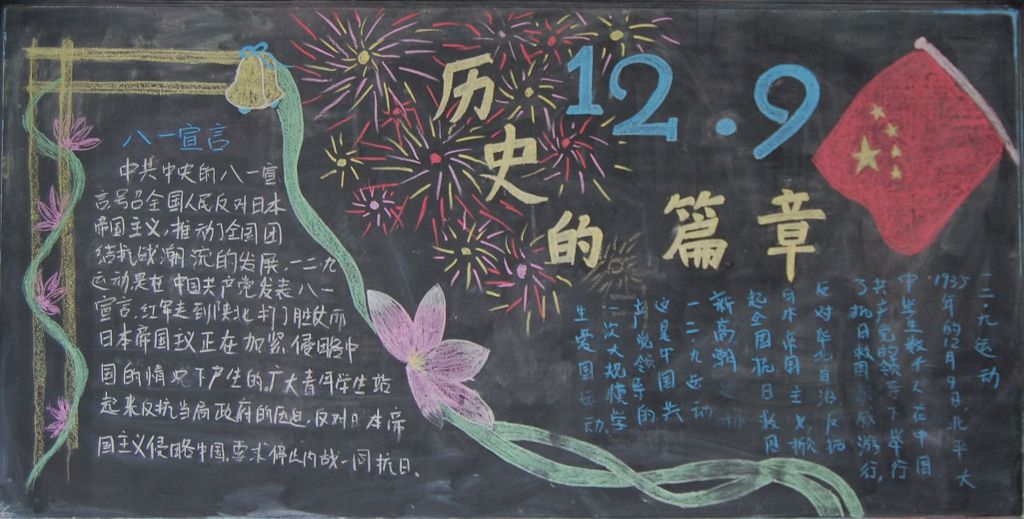 12.9
历史的篇章
八一宣言
中共中央的八一宣
言号召全国人民反对日本
帝国主义,推动了全国团
结抗战潮流的发展.一二九
运动是在中国共产党发表八一
宣言,红军走到陕北打了胜仗而
日本帝国主义正在加紧侵略中
国的情况下产生的,广大青年学生站
起来反抗当局政府的压迫.反对日本帝
国主义侵略中国,要求停止内战一同抗日.
一二九运动
1935年的12月9日,北平大
中学生数千人在中国
共产党的领导下举行
了抗日救国示威游行,
反对华北自治反抗
日本帝国主义,掀
起全国抗日救国
新高潮
一二九运动
这是中国共
产党领导的
一次大规模学
生爱国运动.